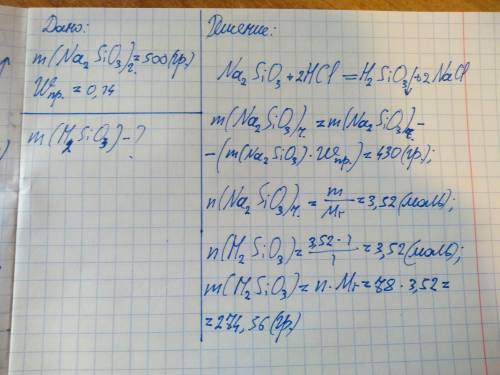 Дано:
m(Na₂SiO₃)г.=500(гр)
Wпр.=0,14
m(H₂SiO₃)-?
Решение:
Na₂SiO₃+2HCl=H₂SiO₃↓+2NaCl
m(Na₂SiO₃)ч.=m(Na₂SiO₃)г.-
-(m(Na₂SiO₃)·Wпр.)=430(гр);
n(Na₂SiO₃)ч.=m/Mr=3,52(моль);
n(H₂SiO₃)=3,52·1/1=3,52(моль);
m(H₂SiO₃)=n·Mr=78·3,52=
=274,56(гр)